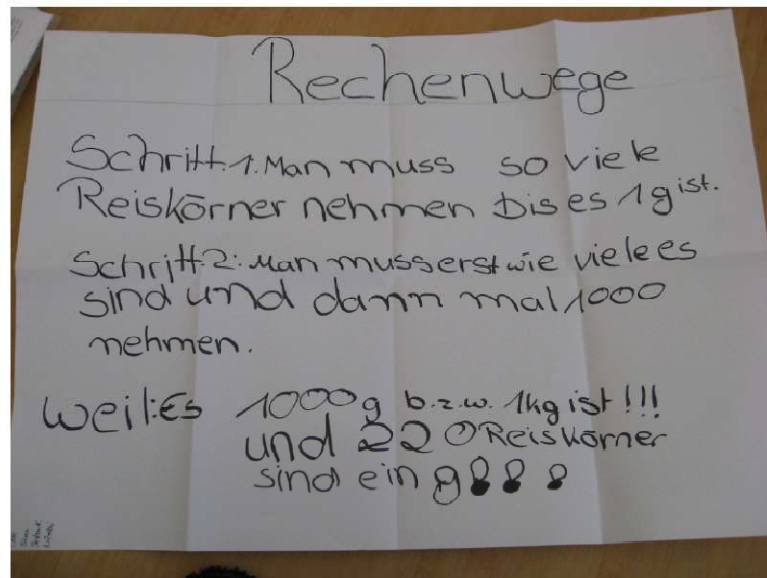 Rechenwege
Schritt 1. Man muss so viele
Reiskörner nehmen bis es 1g ist.
Schritt 2: Man muss erst wie viele es
sind und dann mal 1000
nehmen.
weil: Es 1000g b.z.w. 1kg ist!!!
und 22 Reiskörner
sind ein g!!!